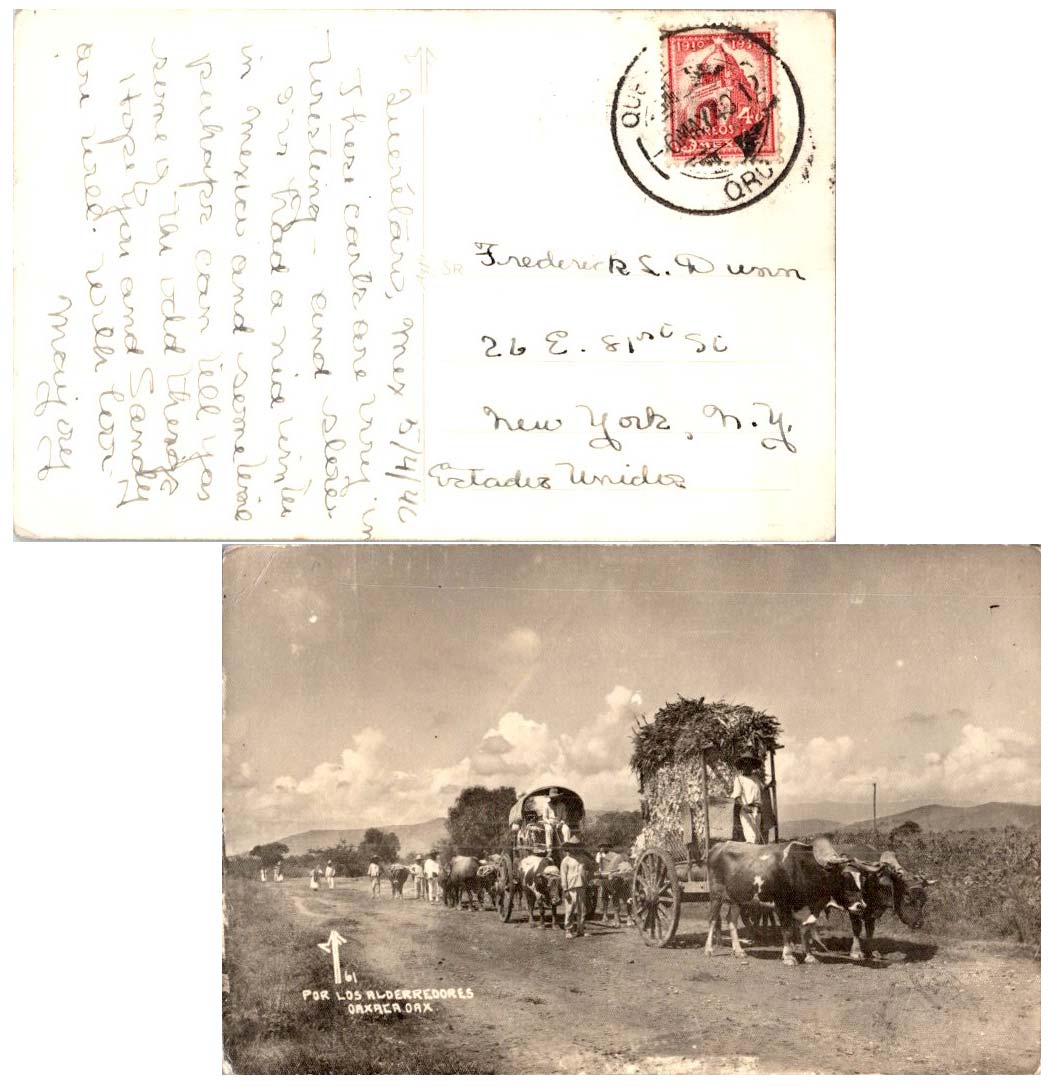 1910 1935
4¢
CORREOS
MEXICO
QRO
Querétaro, Mex 5/4/42
These carts are very in
teresting - and slow.
I've had a nice winter
in Mexico and some time
perhaps can tell you
some of the odd things
Hope you and Sandy
are well. With love
Marjorey
SR
Frederick L. Dunn
26 E. 81st St
New York, N.Y.
Estados Unidos
61
POR LOS ALDERREDORES
OAXACA. OAX.